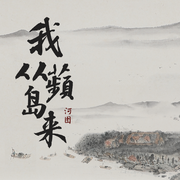 我从
蘋岛来
河图